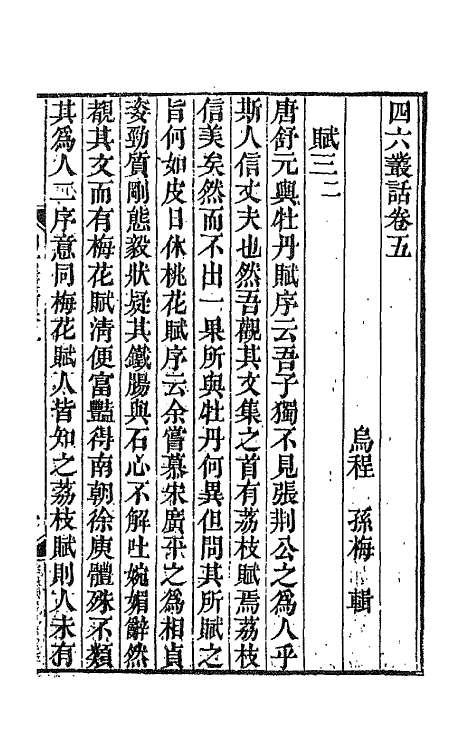 四六叢話卷五
烏程　孫梅　輯
賦三二
唐舒元輿牡丹賦序云吾子獨不見張荆公之為人乎
斯人信丈夫也然吾觀其文集之首有荔枝賦焉荔枝
信美矣然而不出一果所與牡丹何異但問其所賦之
旨何如皮日休桃花賦序云余嘗慕宋廣平之為相貞
姿勁質剛態毅狀疑其鐵腸與石心不解吐婉媚辭然
覩其文而有梅花賦清便富豔得南朝徐庾體殊不類
其為人二序意同梅花賦人皆知之荔枝賦則人未有